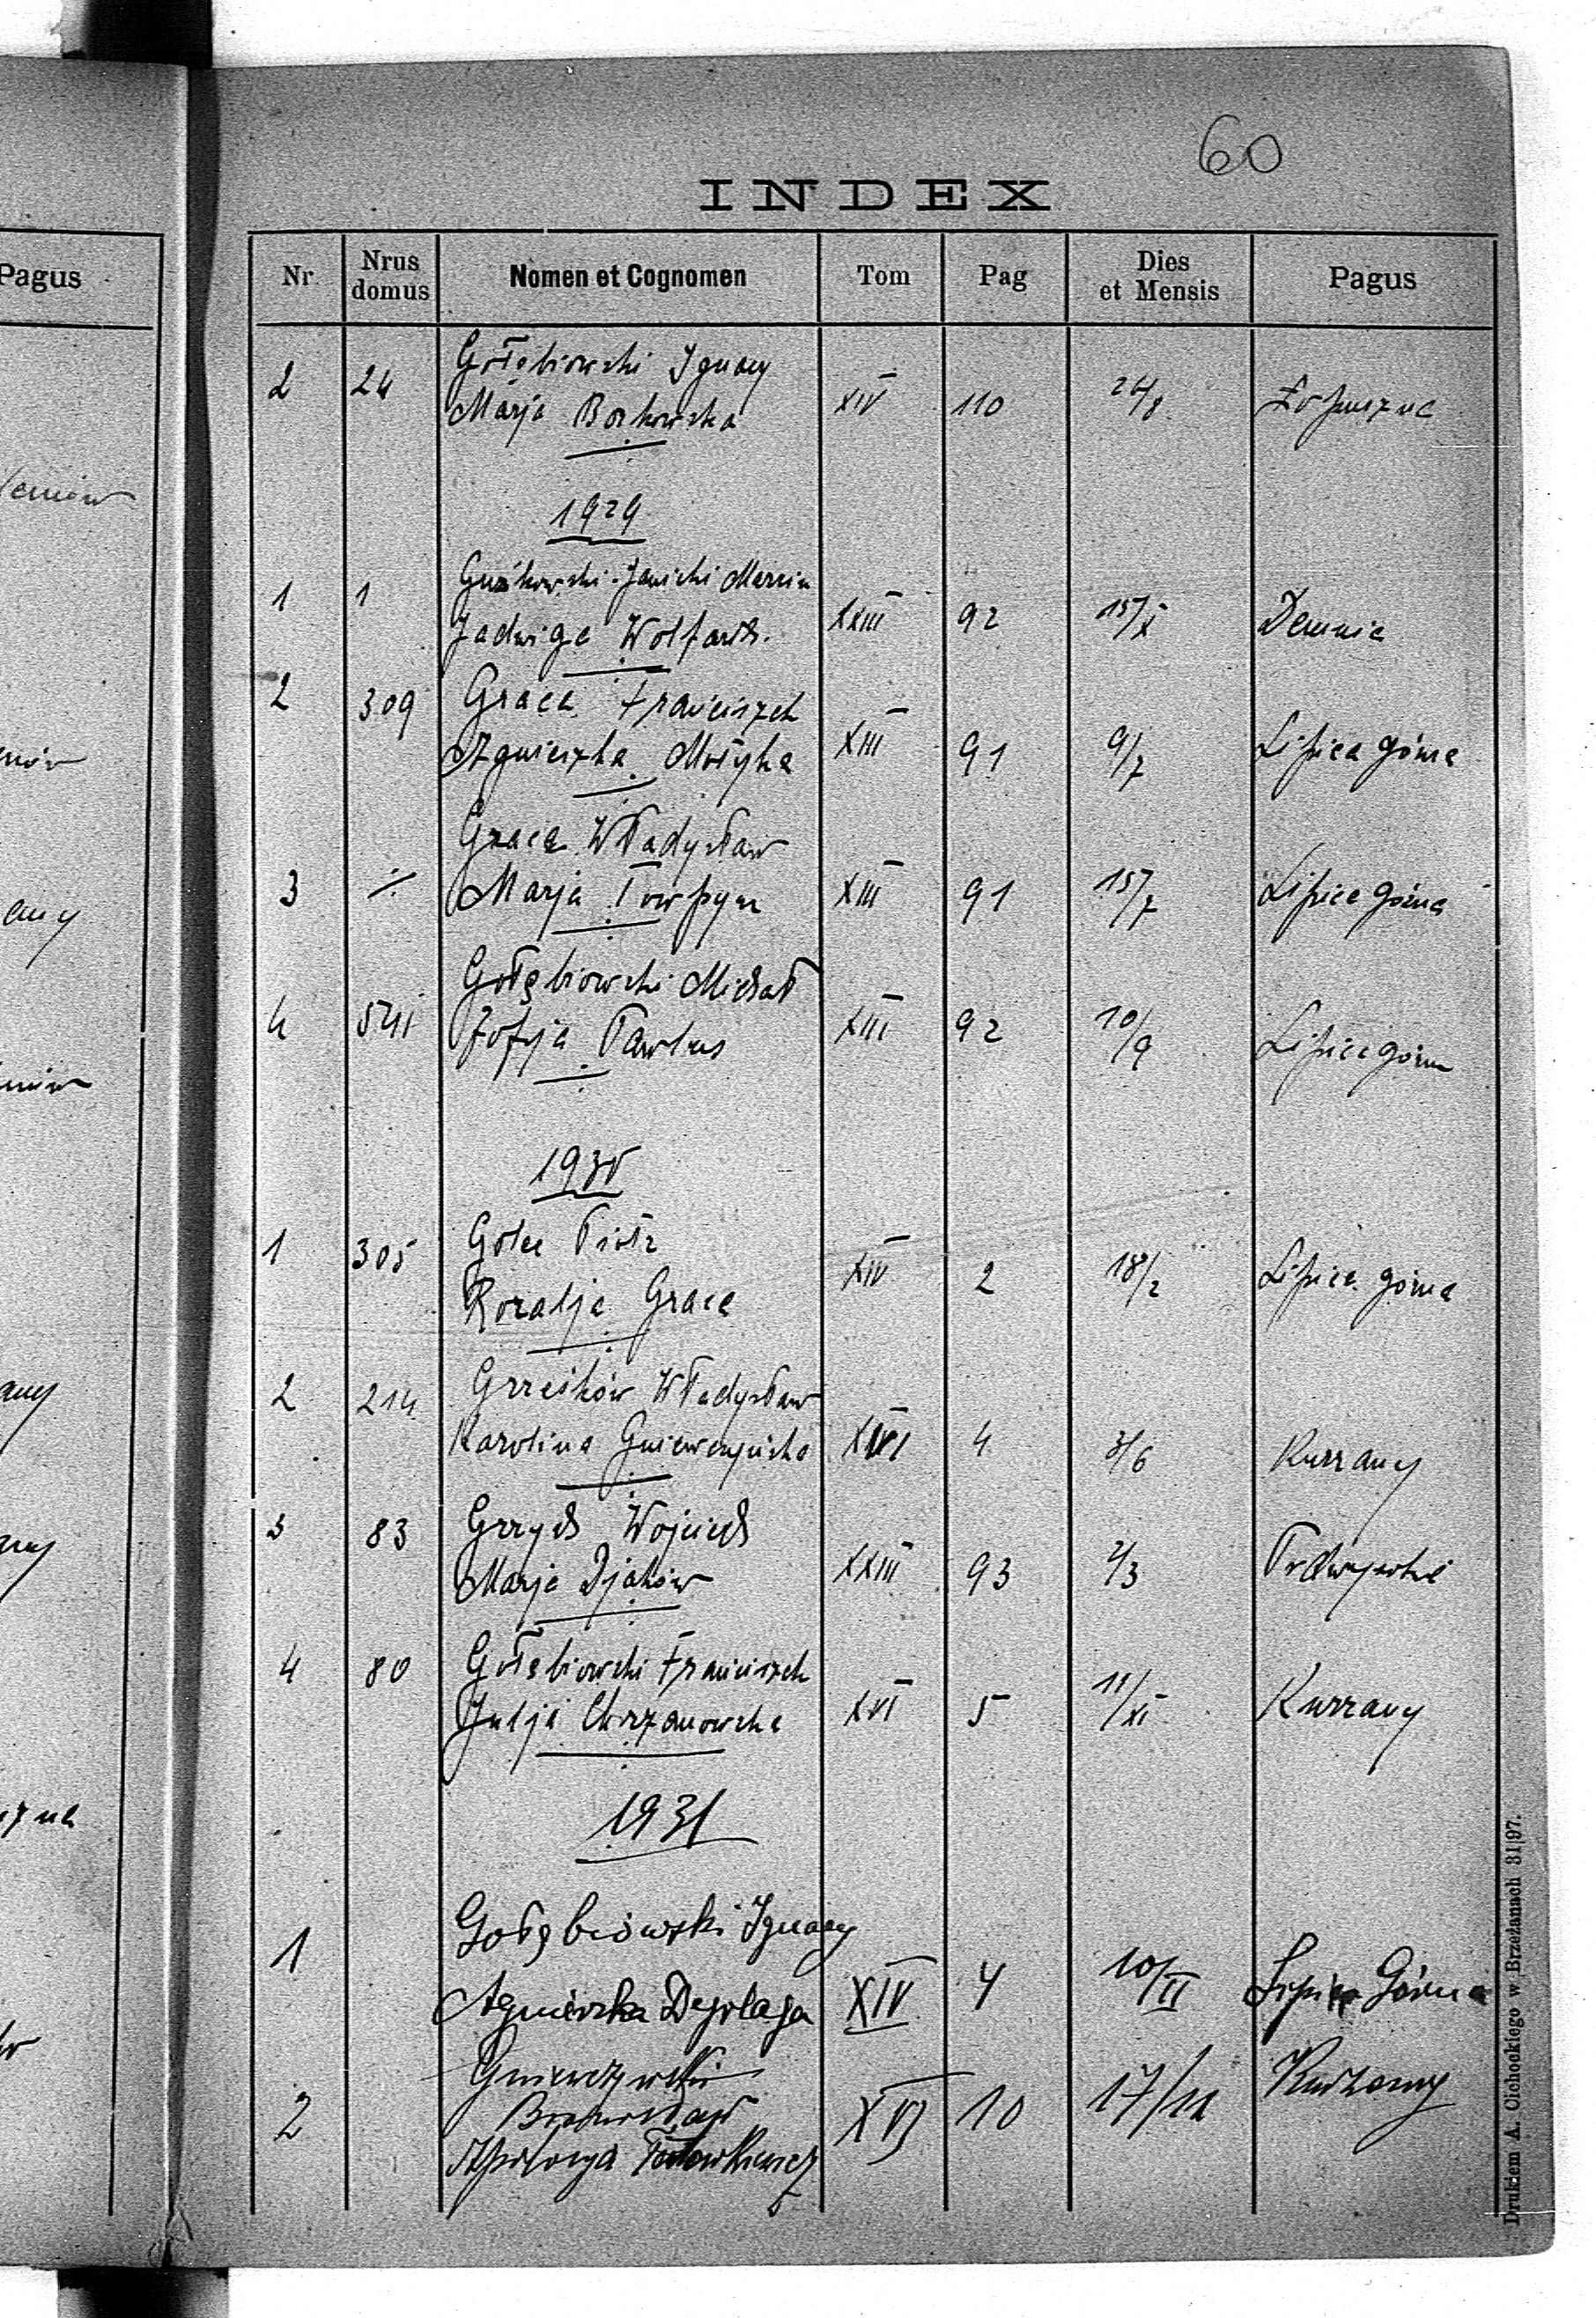 60
INDEX
Pagus
Nr Nrus domus Nomen et Cognomen Tom Pag Dies et Mensis Pagus
Gołębiowski Ignacy
2 24 Marja Borkowska XIV 110 24/8 Łopuszna
1929
Marcin
1 1 Jadwiga XXIII 92 15/X Demnia
2 309 Graca Franciszek
Agnieszka Motyka XIII 91 9/7 Lipica górna
Graca Władysław
3 ·/· Marja XIII 91 15/7 Lipica górna
Gołębiowski Michał
4 Zofja Pawlus XIII 92 10/9 Lipica górna
1930
1 305 Golec Piotr
Rozalja Graca XIV 2 18/2 Lipica górna
2 214 Grześków Władysław
Karolina XVI 4 3/6 Kurzany
3 83 Grzych Wojciech
Marja Djaków XXIII 93 2/3
4 80 Gołębiowski Franciszek
Julja Chrzanowska XVI 5 11/XI Kurzany
1931
Gołębiowski Ignacy
1 Agnieszka XIV 4 10/II Lipica Górna
2 Bronisław XVI 10 17/11 Kurzany
Apolonja
Drukiem A. Cichockiego w Brzeżanach 31|97.